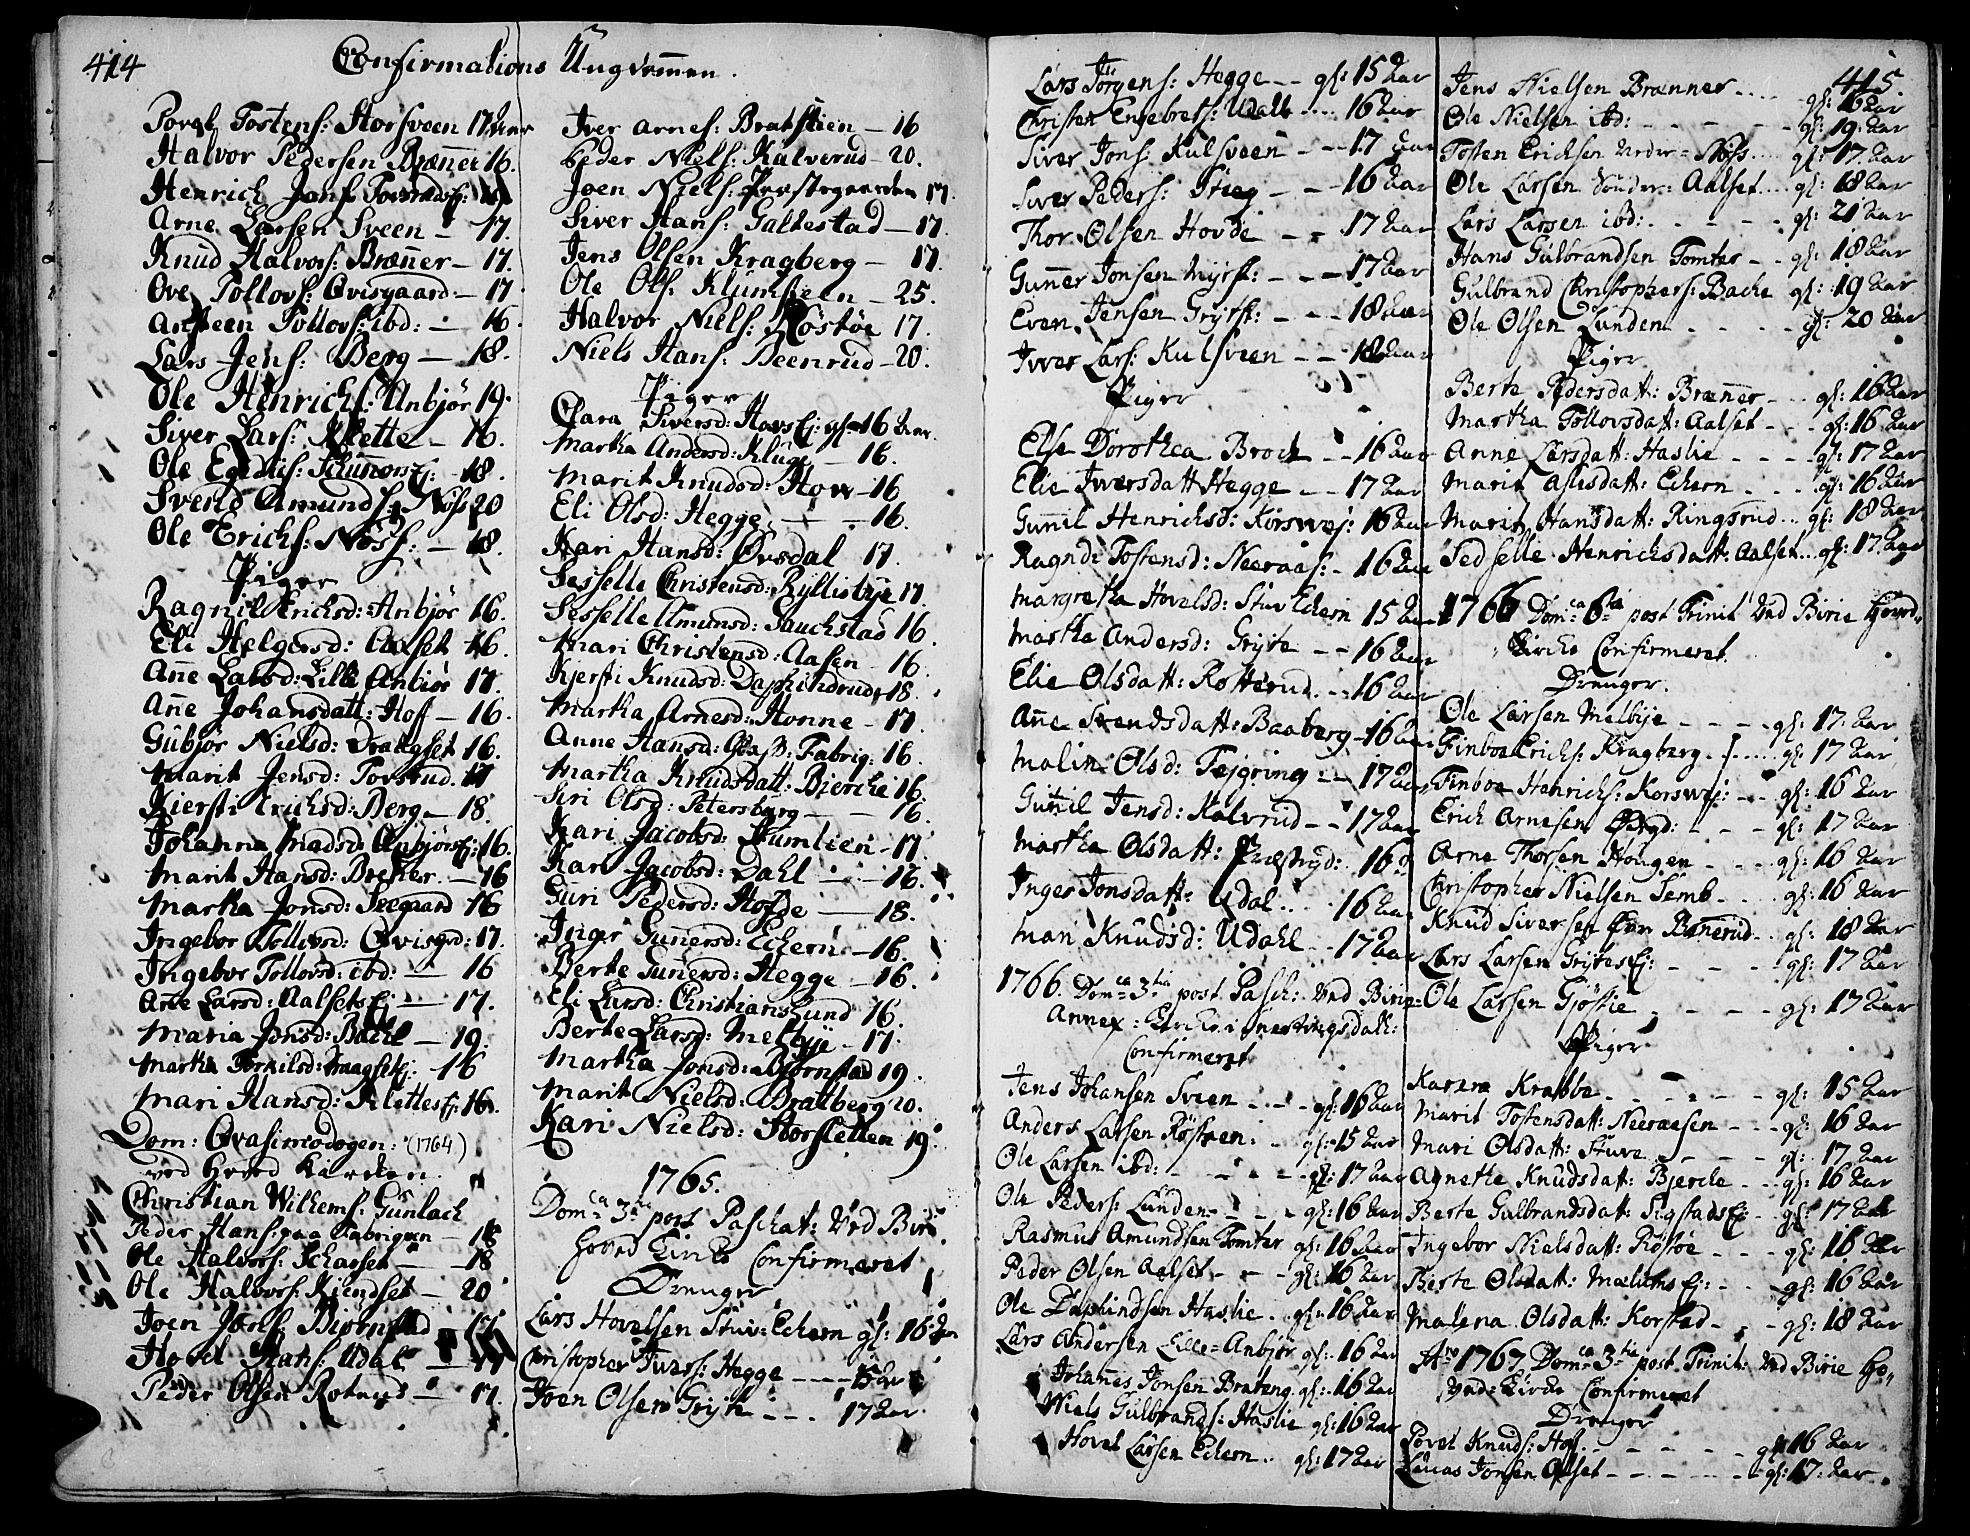 414
Confirmations Ungdommen.
Povel Tostens: Storsveen 17 Aar
Halvor Pedersen Brænner 16.
Henrich Jons:
Arne Larsen Sveen - 17.
Knud Halvors: Brænner - 17.
Ove Tollovs: Qvisgaard - 17
Tollovs: ibd: - 16.
Lars Jens: Berg - 18.
Ole Henrichs: Anbjör 19.
Siver Lars: Klette - 16.
Ole 18.
Svend Amunds: Nöss 20
Ole Erichs: Nöss: - 18.
Piger
Ragnil Erichsd: Anbjör 16.
Eli Helgersd: Aalset 16.
Anne Larsd: Lille Anbiör 17.
Anne Johansdatt: Hoff - 16.
Gubjör Nielsd: Draagset 16.
Marit Jensd: Torsrud. 17
Kiersti Erichsd: Berg - 18.
Johanna Madsd: Anbjörsej: 16.
Marit Hansd: Brecher. - 16
Martha Jonsd: Seegaard 16
Ingebor Tollovsd: Qvisgrd: 17.
Ingebor Tollovsd: ibd: - 16
Arne Larsd: Aalsets Ej: - 17.
Maria Jonsd: Bache - 19.
Martha Torkilsd: Draagsetej: - 16
Mari Hansd: Klettesej: 16.
Dom: Qvasimodogen: (1764)
ved Hoved Kircken.
Christian Wilhems: Gunlach
Peder Hans: paa Fabriqven - 18
Ole Halvors: Schaaset - 18
Ole Halvors: Kiendset - 20
Joen Joens: Biörnstad
Hovel Hans: Udal
Peder Olsen Roterud - 17.
Iver Arnes: Bratstien - 16
Peder Niels: Kalverud - 20.
Joen Niels: Præstegaarden 17.
Siver Hans: Galtestad - 17.
Jens Olsen Kragberg - 17.
Ole Ols: Klumsteen - 25.
Halvor Niels: Röstöe 17.
Niels Hans: Beenrud - 20.
Piger
Clara Siversd: Hovs Ej: gl: 16 Aar.
Martha Andersd: Kluge - 16.
Marit Knudsd: Hov - 16
Eli Olsd: Hegge - 16.
Kari Hansd: Øvsdal 17.
Sesselle Christensd: Ryllisbye 17.
Sesselle Amunsd: Sauchstad 16.
Mari Christensd: Aasen - 16.
Kjersti Knudsd: Daphindrud 18.
Martha Arnesd: Honne - 17.
Anne Hansd: Glas: Fabriq: 16.
Martha Knudsdatt: Biercke 16.
Siri Olsd: Petersburg - 16.
Kari Jacobsd: Skumlien - 17.
Kari Jacobsd: Dahl - 16.
Guri Pedersd: Hofde - 18.
Inger Gunnersd: Echern - 16.
Berte Gunersd: Hegge - 16.
Eli Larsd: Christianslund 16.
Berte Larsd: Melbye - 17.
Martha Jonsd: Bjørnstad 19.
Marit Nielsd: Brattberg 20.
Kari Nielsd: Storsletten 19.
1765.
Domca 3tia post Paschat: Ved Birie
Hoved Kirke Confirmeret
Drenger
Lars Hovelsen Stuv: Echern gl: 16 Aar
Christopher Ivers: Hegge - 15 Aar
Joen Olsen Gryte - 17 Aar.
Lars Jörgens: Hegge - gl: 15 Aar
Christen Engebrets: Udall 16 Aar
Siver Jons: Kulsveen - 17 Aar
Siver Peders: Stieg - 16 Aar
Thor Olsen Hovde - 17 Aar
Gunner Jonsen Myrst: - 17 Aar
Even Jensen Gryst: - 18 Aar
Iver Lars: Kulsveen - 18 Aar
Piger
Else Dorothea Brock - 16 Aar
Elie Iversdatt Hegge - 17 Aar
Gunnil Henrichsd: Korsvej: 16 Aar
Ragndi Tostensd: Neeraas: - 16 Aar
Margretha Hovelsd: Stuv Echern 15 Aar
Martha Andersd: Gryte - 16 Aar
Elie Olsdatt: Rotterud - 16 Aar
Anne Svendsdatt: Baaberg - 16 Aar
Malin Olsd: Fejgring - 17 Aar
Gunnil Jensd: Kalvrud - 17 Aar
Martha Olsdatt: 16
Inger Jonsdatt: Udal 16 Aar
Mari Knudsd: Udahl - 17 Aar
1766. Domca 3tia post Pasch: Ved Birie
Annex: Kirke i
Confirmeret
Jens Johansen Sveen - gl: 16 Aar
Anders Larsen Röstøen: - gl: 15 Aar
Ole Larsen ibd: - gl: 17 Aar
Ole Peders: Lunden - gl: 16 Aar
Rasmus Amundsen Tomter gl: 16 Aar
Peder Olsen Aalset - gl: 16 Aar
Ole Daphindsen Haslie gl: 16 Aar
Lars Andersen Lille-Anbjör gl: 16 Aar
Johannes Jonsen Brateng gl: 16 Aar
Niels Gulbrands: Haslie gl: 16 Aar
Hovel Larsen Echern gl: 17 Aar
415.
Jens Nielsen Brænner gl: 16 Aar
Ole Nielsen ibd: - gl: 19. Aar
Tosten Erichsen Neder-Nöss gl: 17. Aar
Ole Larsen Sönder: Aalset gl: 18 Aar
Lars Larsen ibd: - gl: 21 Aar
Hans Gulbrandsen Tomter - gl: 18 Aar
Gulbrand Christophers: Bache gl: 19 Aar
Ole Olsen Lunden - gl: 20 Aar
Piger
Berte Pedersdatt: Brænner - gl: 16 Aar
Martha Tollovsdatt: Aalset - gl: 16 Aar
Anne Larsdatt: Haslie - gl: 17 Aar
Marit Aslesdatt: Echern - gl: 16 Aar
Marit Hansdatt: Ringsrud gl: 18 Aar
Sedselle Henrichsdatt: Aalset gl: 17. Aar
1766 Domca 6ta post Trinit Ved Birie Hoved-
Kirke Confirmeret.
Drenger.
Ole Larsen Melbye - gl: 17. Aar
Finboe Erichs: Kragberg gl: 17 Aar
Finboe Henrichs: Korsvej: - gl: 16 Aar
Erich Arnesen - gl: 17 Aar
Arne Thorsen Hougen - gl: 16 Aar
Christopher Nielsen Semb gl: 16 Aar
Knud Siversen Benerud gl: 18 Aar
Lars Larsen Grytesej: - gl: 17 Aar
Ole Larsen Gjöstie - gl: 17 Aar
Piger
Karen Krabbe - gl: 15 Aar
Marit Tostensdatt: Neeraasen - gl: 16 Aar
Mari Olsdatt: Stuve - gl: 17. Aar
Agnethe Knudsdatt: Bjercke - gl: 16 Aar
Berte Gulbrandsdatt: Sigstadsej: - gl: 17 Aar
Ingebor Nielsdatt: Röstöe - gl: 16 Aar
Berte Olsdatt: Mælumsej: - gl: 16 Aar
Malena Olsdatt: Korstad - gl: 18 Aar
Ao 1767. Domca 3tia post Trinit: Ved Birie Ho-
ved: Kirke Confirmeret
Drenger
Povel Knuds: Hof - gl: 16 Aar
Lucas Jonsen - gl: 17. Aar